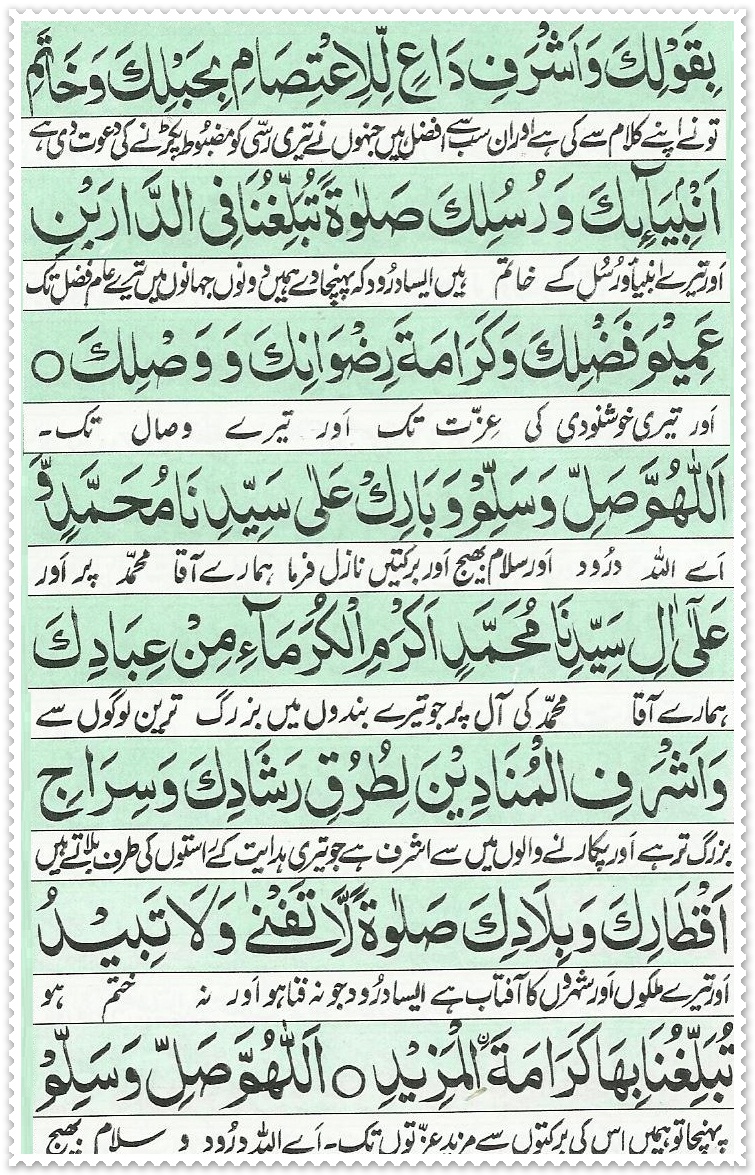 بِقَوْلِكَ وَاَشْرَفِ دَاعٍ لِّلْاِعْتِصَامِ بِحَبْلِكَ وَخَاتَمِ
تو نے اپنے کلام سے کی ہے اور ان سب سے افضل ہیں جنہوں نے تیری رسّی کو مضبوط پکڑنے کی دعوت دی ہے
اَنْۢبِيَآئِكَ وَرُسُلِكَ صَلٰوةً تُبَلِّغُنَا فِى الدَّارَيْنِ
اور تیرے انبیاؑ و رُسُل کے خاتم ہیں ایسا درُود کہ پہنچا دے ہمیں دونوں جہانوں میں تیرے عام فضل تک
عَمِيْمَ فَضْلِكَ وَكَرَامَةَ رِضْوَانِكَ وَوَصْلِكَ ○
اَور تیری خوشنودی کی عِزّت تک اَور تیرے وصال تک۔
اَللّٰهُمَّ صَلِّ وَسَلِّمْ وَبَارِكْ عَلٰى سَيِّدِنَا مُحَمَّدٍ وَّ
اَے اللہ درُود اَور سلام بھیج اَور برکتیں نازل فرما ہمارے آقا محمّد پر اَور
عَلٰٓى اٰلِ سَيِّدِنَا مُحَمَّدٍ اَكْرَمِ الْكُرَمَآءِ مِنْ عِبَادِكَ
ہمارے آقا محمّد کی آل پر جو تیرے بندوں میں بزرگ ترین لوگوں سے
وَاَشْرَفِ الْمُنَادِيْنَ لِطُرُقِ رَشَادِكَ وَسِرَاجِ
بزرگ تر ہے اَور پکارنے والوں میں سے اشرف ہے جو تیری ہدایت کے راستوں کی طرف بلاتے ہیں
اَقْطَارِكَ وَبِلَادِكَ صَلٰوةً لَّا تَفْنٰى وَلَا تَبِيْدُ
اَور تیرے ملکوں اَور شہروں کا آفتاب ہے ایسا درُود جو نہ فنا ہو اَور نہ ختم ہو
تُبَلِّغُنَا بِهَا كَرَامَةَ الْمَزِيْدِ ○ اَللّٰهُمَّ صَلِّ وَسَلِّمْ
پہنچا تو ہمیں اس کی برکتوں سے مزید عزّتوں تک۔ اَے اللہ درُود و سلام بھیج